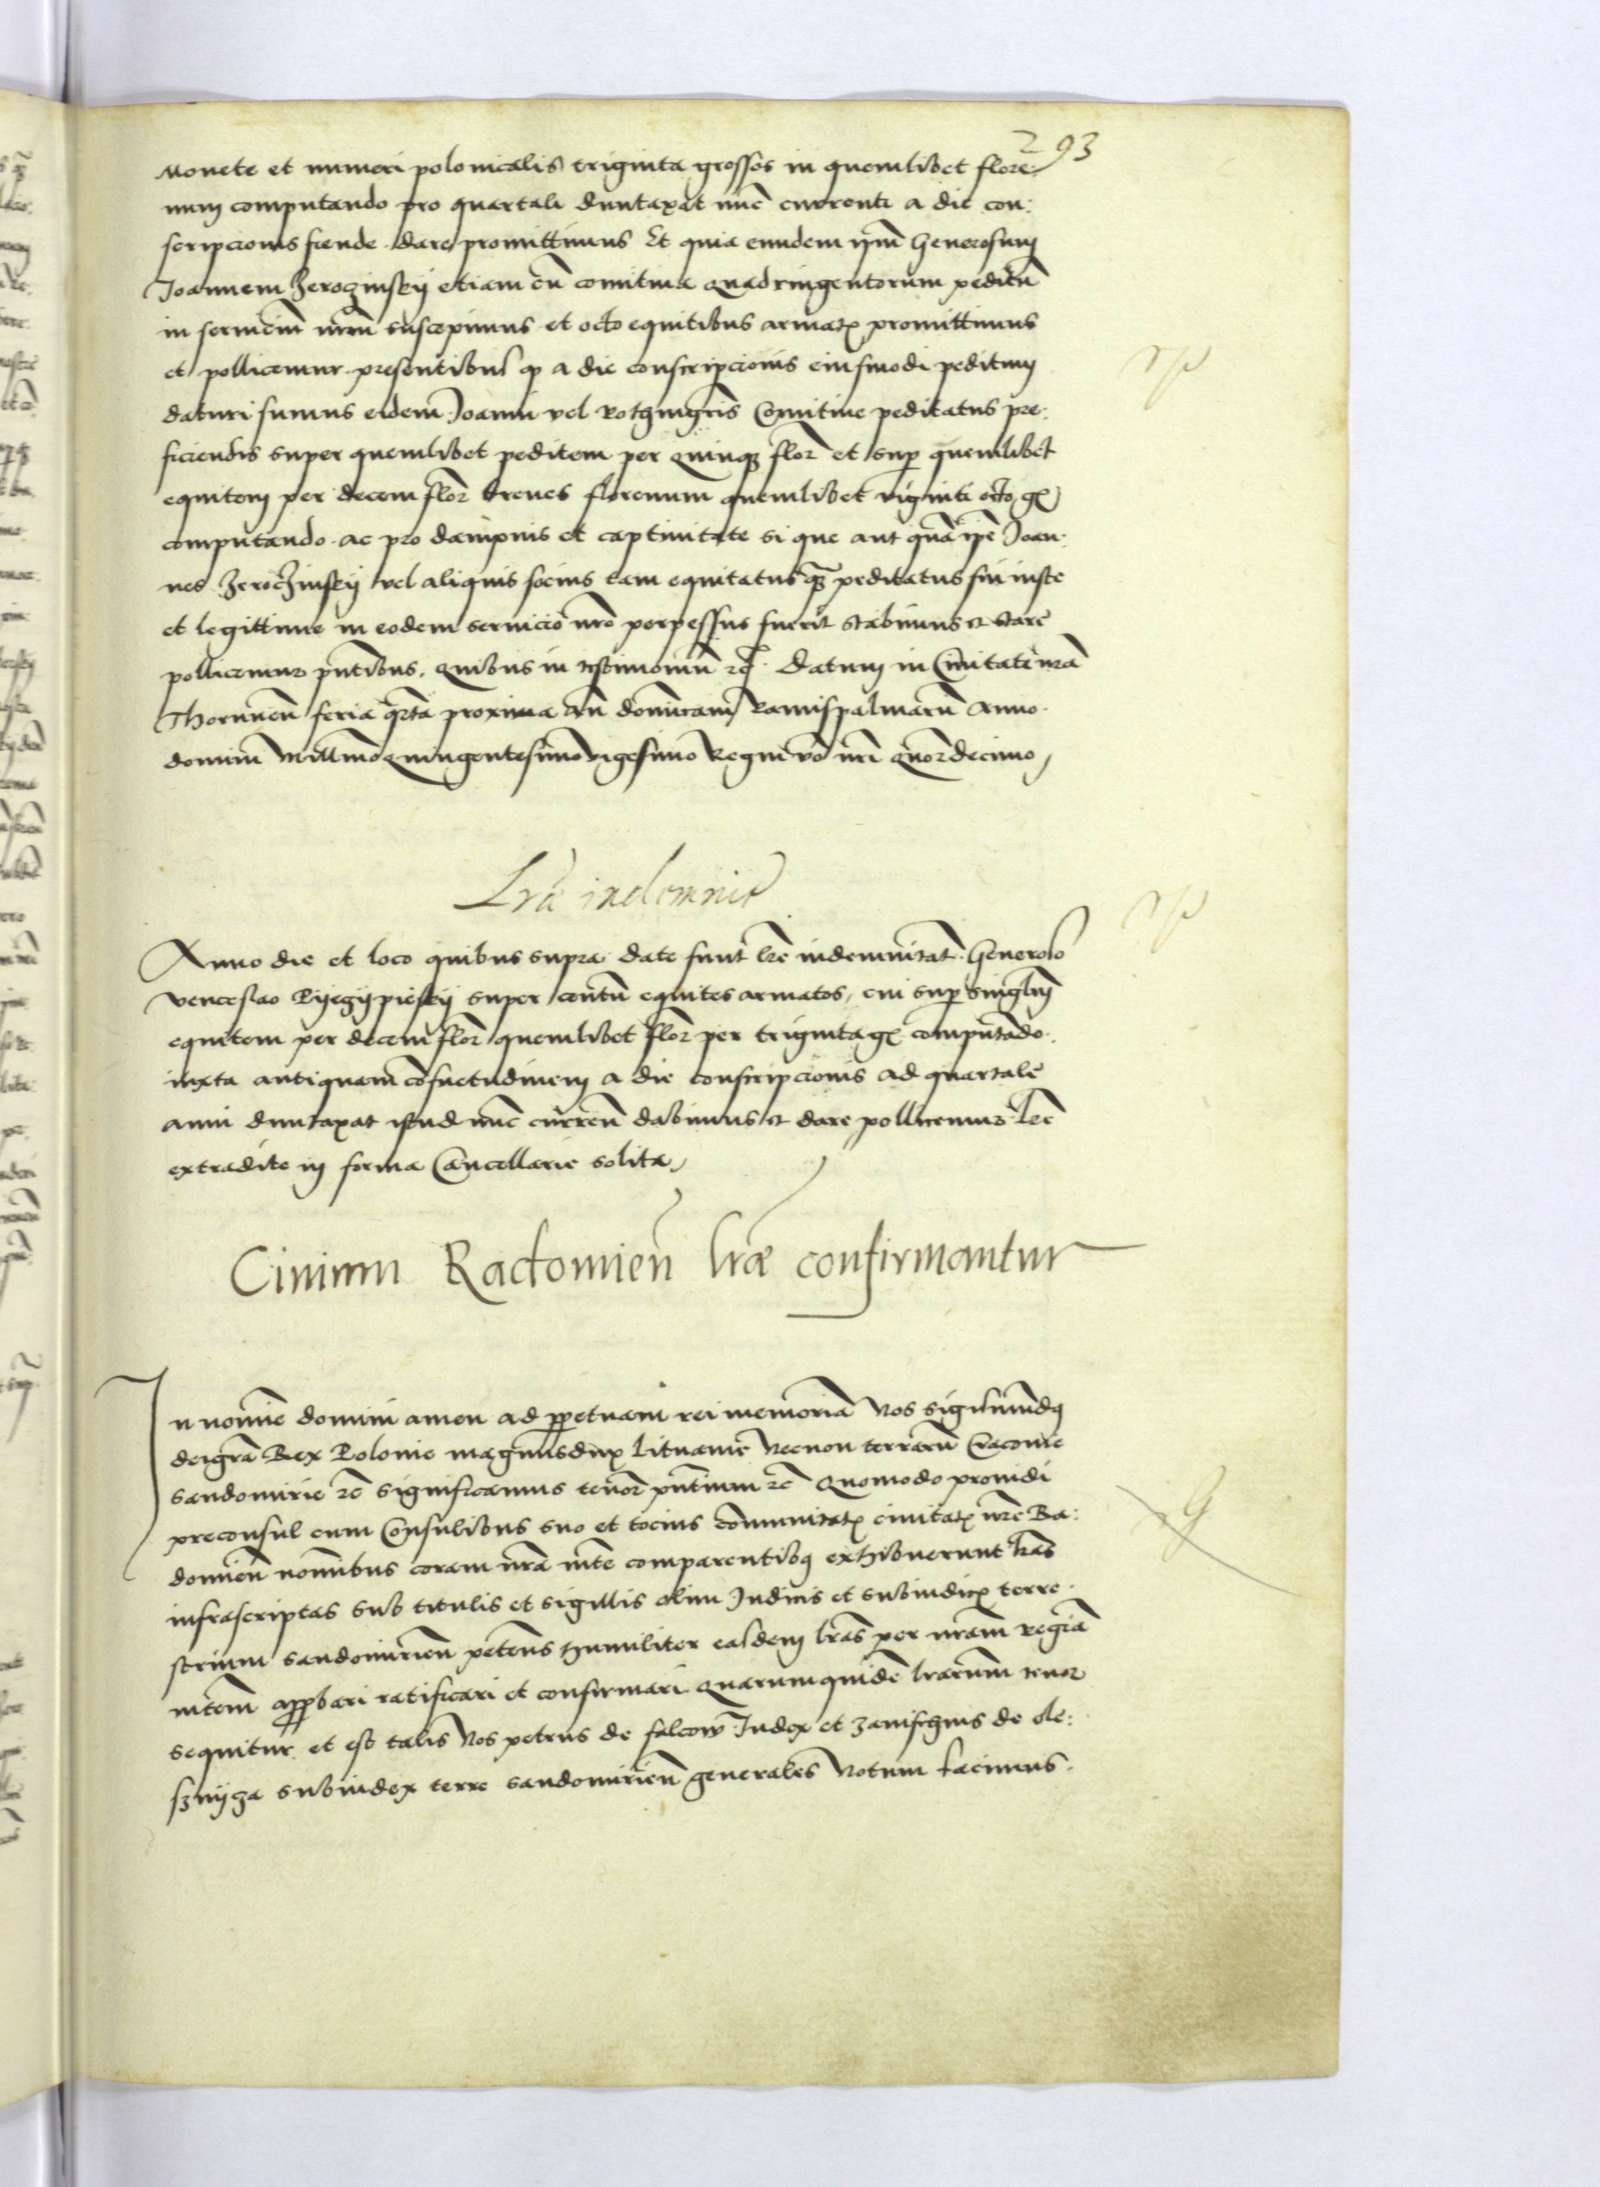 293
Monete et numeri polonicalis triginta grossos in quemlibet flore-
num computando pro quartali duntaxat nũc currenti a die con:
scripcionis fiende dare promittimus Et quia eundem ipm̃ Generosum
Joannem Zeroczinskij etiam cũ comitiua quadringentorum peditũ
in seruiciũ nr̃m suscepimus et octo equitibus armatꝭ promittimus
et pollicemur presentibus ꝙ a die conscripcionis eiusmodi peditum
daturi sumus eidem Joanni vel Rothmgris Comitiue peditatus pre:
ficiendis super quemlibet peditem per quinqꝫ flor̃ et sup̃ quemlibet
equitem per decem flor̃ breues florenum quemlibet viginti octo gꝭ
computando ac pro dampnis et captiuitate si que aut quã ip̃e Joan:
nes Zeroczinskij vel aliquis socius tam equitatus qꝫ peditatus sui iuste
et legittime in eodem seruicio nr̃o perpessus fuerit stabimus et stare
pollicemur pñtibus. quibus in testimoniũ zc̃. Datum in Ciuitate nr̃a
Thorunen̄ feria q̃rta proxima añ dominicam Ramispalmarũ Anno
domini Millmõ quingentesimo vigesimo Regni vo nr̃i quordecimo
Lr̃a indemnit̃
Anno die et loco quibus supra date sunt lr̃e indemnitat̃ Generoso
Venceslao super centũ equites armatos, cui sup̃ singlm̃
equitem per decem flor̃ quemlibet flor̃ per triginta gꝭ computãdo.
iuxta antiquam cõsuetudinem a die conscripcionis ad quartale
anni duntaxat istud nũc curren̄ dabimus et dare pollicemur lr̃e
extradite in forma Cancellarie solita
Ciuium Radomien̄ lr̃æ confirmantur
In nomĩe domini amen ad ꝑpetuam rei memoriã Nos Sigismũdꝰ
deigrã Rex Polonie magnusdux Lituanie Necnon terrarũ Cracouie
Sandomirie zc̃ significamus tenor̃ pñtium zc̃ Quomodo prouidi
preconsul cum Consulibus suo et tocius cõmunitatꝭ ciuitatꝭ nr̃e Ra:
domien̄ nomĩbus coram nr̃a mte comparentibꝰ exhibuerunt lr̃as
infrascriptas sub titulis et sigillis olim Judicis et subiudicꝭ terre-
strium Sandomirien̄ petens humiliter easdem lr̃as per nr̃am regiã
mtem̃ approbari ratificari et confirmari Quarumquidẽ lr̃arum tenor
sequitur et est talis Nos petrus de falcow Judex et de Ole:
sznijcza subiudex terre Sandomirien̄ generales Notum facimus